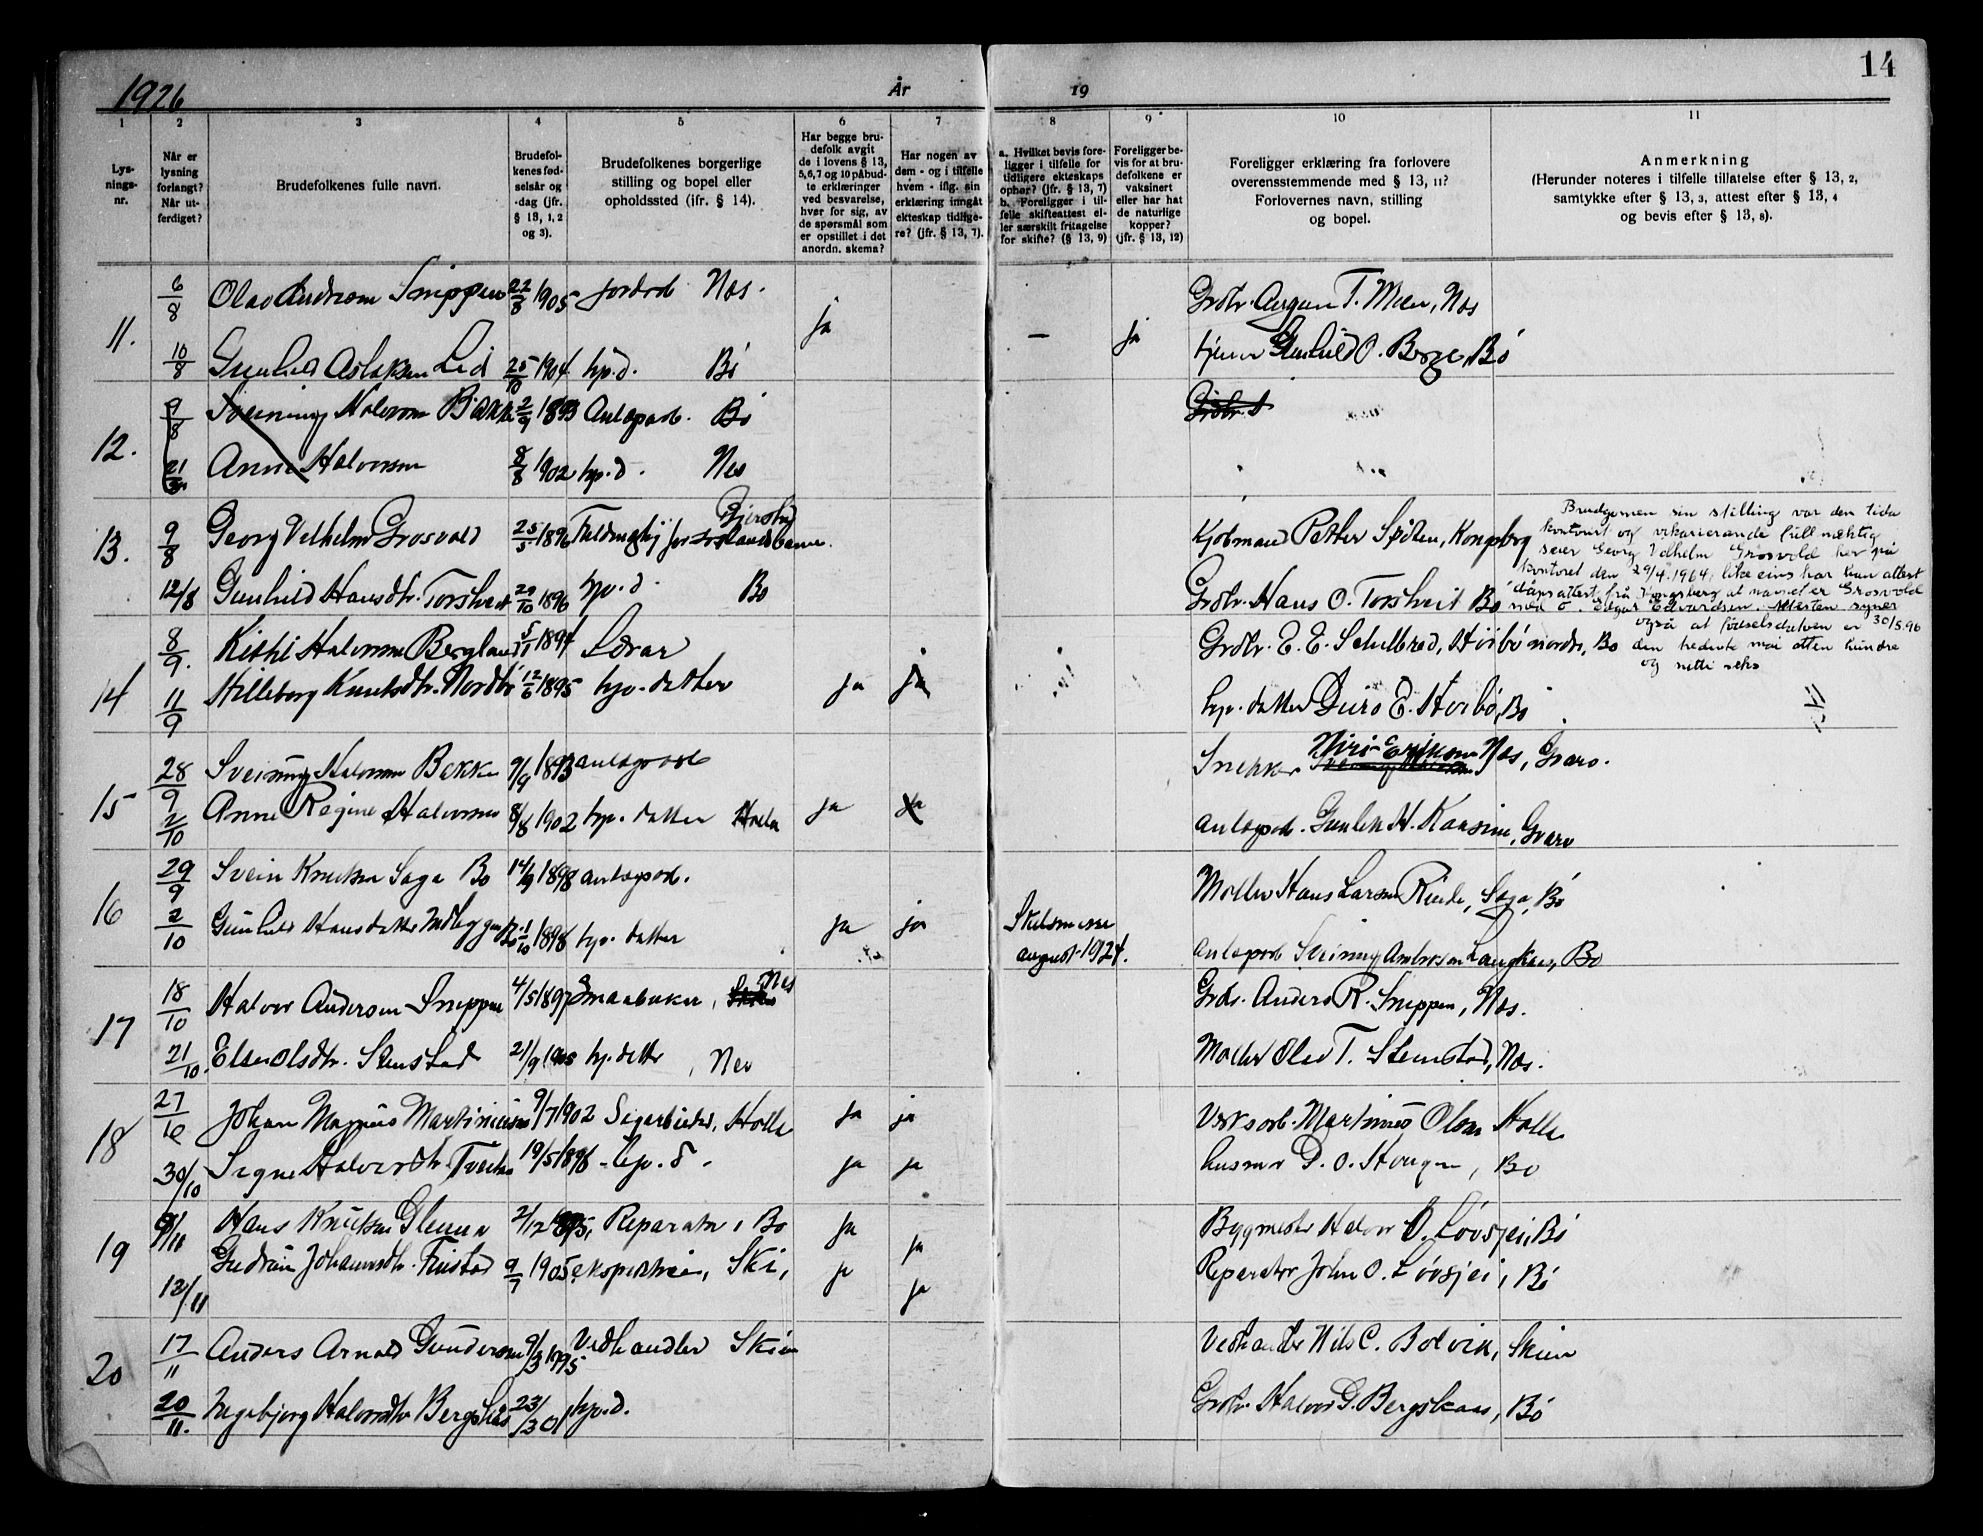 1926 År 19 14
1 2 3 4 5 6 7 8 9 10 11
Lys-
nings-
nr.
Når er
lysning
forlangt?
Når ut-
ferdiget?
Brudefolkenes fulle navn.
Brudefol-
kenes fød-
selsår og
-dag (jfr.
§ 13, 1, 2
og 3).
Brudefolkenes borgerlige
stilling og bopel eller
opholdssted (ifr. § 14).
Har begge bru-
defolk avgit
de i lovens § 13,
5, 6, 7 og 10 påbud-
te erklæringer
ved besvarelse,
hver for sig, av
de spørsmål som
er opstillet i det
anordn. skema?
Har nogen av
dem - og i tilfelle
hvem - iflg. sin
erklæring inngått
ekteskap tidlige-
re? (jfr. § 13, 7).
a. Hvilket bevis fore-
ligger i tilfelle for
tidligere ekteskaps
ophør? (jfr. § 13, 7)
b. Foreligger i til-
felle skifteattest el-
ler særskilt fritagelse
for skifte? (§ 13, 9)
Foreligger be-
vis for at bru-
defolkene er
vaksinert
eller har hat
de naturlige
kopper?
(jfr. § 13, 12)
Foreligger erklæring fra forlovere
overensstemmende med § 13, 11?
Forlovernes navn, stilling
og bopel.
Anmerkning
(Herunder noteres i tilfelle tillatelse efter § 13, 2,
samtykke efter § 13, 3, attest efter § 13, 4
og bevis efter § 13, 8).
11. 6/8 Olav Andersen Sneppen 22/8 1905 jordarb Nes. ja — ja Grdbr. T. Moen, Nes
10/8 Gunhild Aslaksen Lid 25/10 1904 hp.d. Bø tjener Gunhild O. Berge, Bø
12. 9/8 Sveinung Halvorsen Bakke 2/9 1893 Anlegsarb. Bø Grdbr.
21/8 Anne Halvorsen 8/8 1902 hp.d. Nes
13. 9/8 Georg Vilhelm Grosvold 25/5 1896 Kjøbmand Petter Kongsberg
12/8 Gunhild Hansdtr. Torsheit 29/10 1896 hp.d. Bø Grdbr. Hans O. Torsheit Bø
Brudgomen sin stilling var den tida
kontorist og vikarierande fullmektig
seier Georg Vilhelm Grosvold her på
kontoret den 29/4.1964, like eins har han attert
dåpsattest frå Kongsberg at navnet er Grosvold
med o. Edgar Edvardsen. Attesten syner
også at fødselsdatoen er 30/5.96
den tredivte mai atten hundre
og nitti seks
14 8/9. Kittil Halvorsen Bergland 5/1 1894 Lærar Grdbr. E. E. Schulbred, Høibø nordr, Bø
11/9 Hilleborg Knutsdtr. Nordbø 12/6 1895 hp. datter ja ja hp. datter Guro E. Høibø, Bø
15 28/9 Sveinung Halvorsen Bakke 9/9 1893 anlegsarb Snekker Eriksen Nes, Gvarv.
2/10 Anne Regine Halvorsen 8/8 1902 hp. datter Holla ja ja anlegsarb. Gunlek H. Gvarv
16 29/9 Svein Knutsen Saga Bø 14/9 1898 anlegsarb. Møller Hans Larsen Rinde, Saga, Bø
2/10 Gunhild Hansdatter Bø 1/10 1898 hp. datter ja ja Skilsmisse
august 1924. anlegsarb Sveinung Bø
17 18/10 Halvor Andersen Sneppen 4/5 1897 Smaabruker, Nes Grdr. Anders R. Sneppen, Nes.
21/10. Elen Olsdtr. Stenstad 21/9 1905 hp. datter, Nes Møller Olav T. Stenstad, Nes.
18 27/10 Johan Magnus Martinusen 9/7 1902 Sagarbeider, Holla ja ja Verksarb. Martinus Olsen Holla
30/10 Signe Halvorsdtr. 19/5 1896 hp. d. ja ja husmor D. O. Haugen, Bø
19 9/11 Hans Knutsen Glenna 2/12 1895, Reparatør, Bø ja ja Bygmester Halvor O. Løvsjei, Bø
12/11 Gudrun Johannesdtr. Finstad 9/7 1905 ekspeditrise, Ski, ja ja Reparatør John O. Løvsjei, Bø
20 17/11 Anders Arnold Gundersen 9/3 1895 Vedhandler Skien Vedhandler Nils C. Bolvik, Skien
20/11. Ingebjørg Halvorsdtr Bergskås 23/3 01 hp.d. Grdbr. Halvor G. Bergskaas, Bø